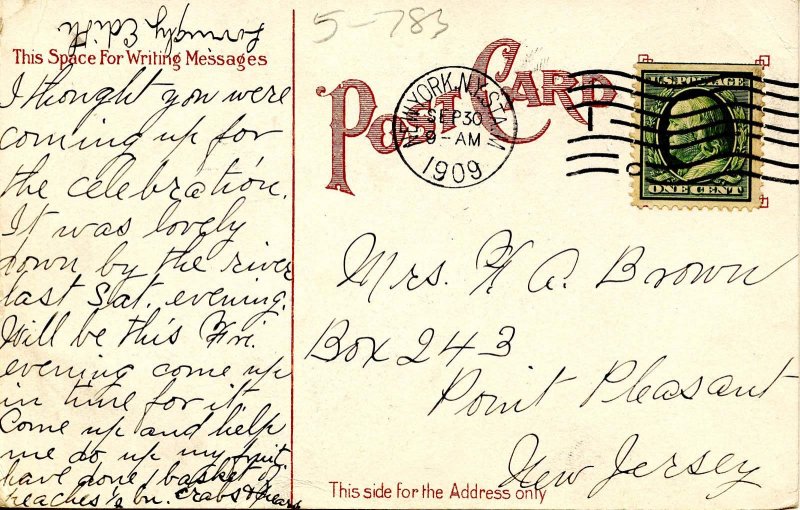 This Space For Writing Messages
I thought you were
coming up for
the celebration.
It was lovely
down by the river
last Sat. evening.
Will be this Fri.
evening come up
in time for it.
Come up and help
me do up my fruit
have done 1 basket of
peaches ½ bu. crabs & pears
Lovingly Edith
5-783
POST CARD
NEW YORK, N.Y. STA. M
SEP 30
9-AM
1909
1
U.S. POSTAGE
ONE CENT
Mrs. H A. Brown
Box 243
Point Pleasant
New Jersey
This side for the Address only